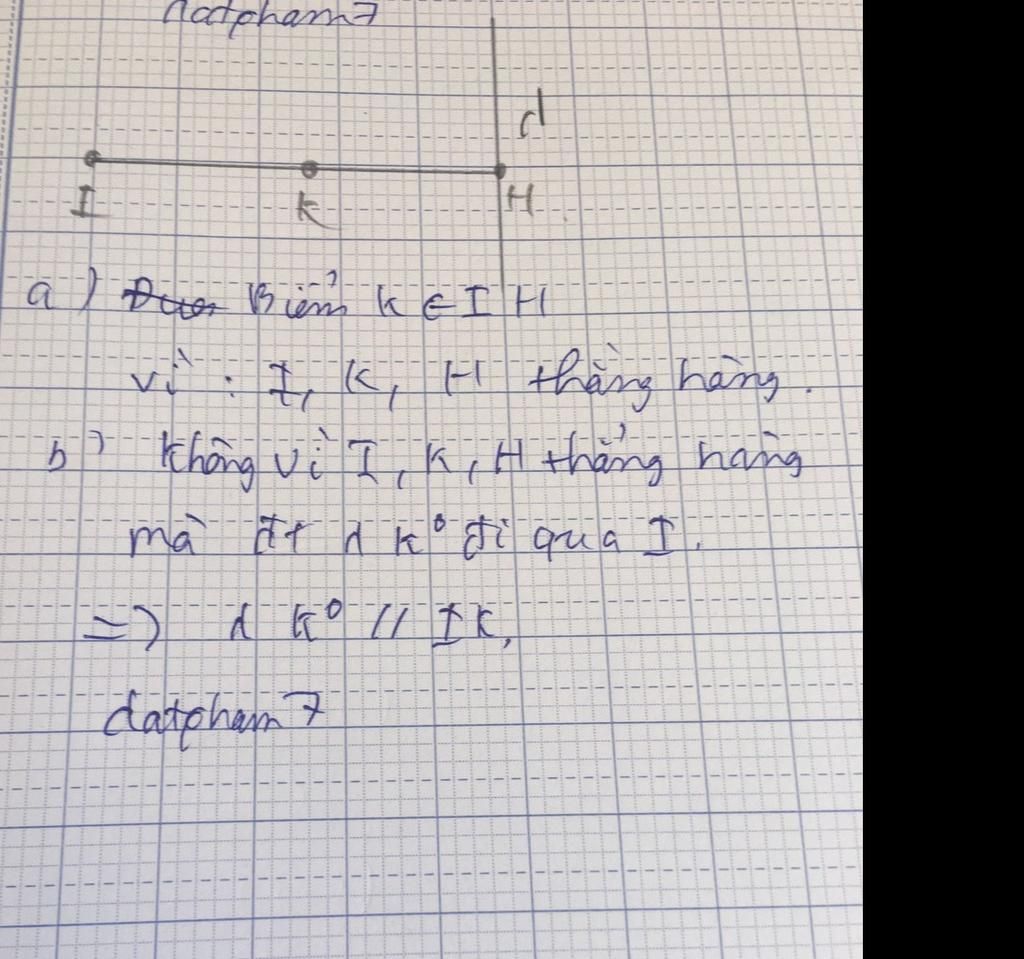 datpham7
d
I K H
a) Điểm K ∈ I H
vì : I, K, H thẳng hàng.
b) Không vì I, K, H thẳng hàng
mà đt d k° đi qua I.
=> d k° // IK,
datpham7